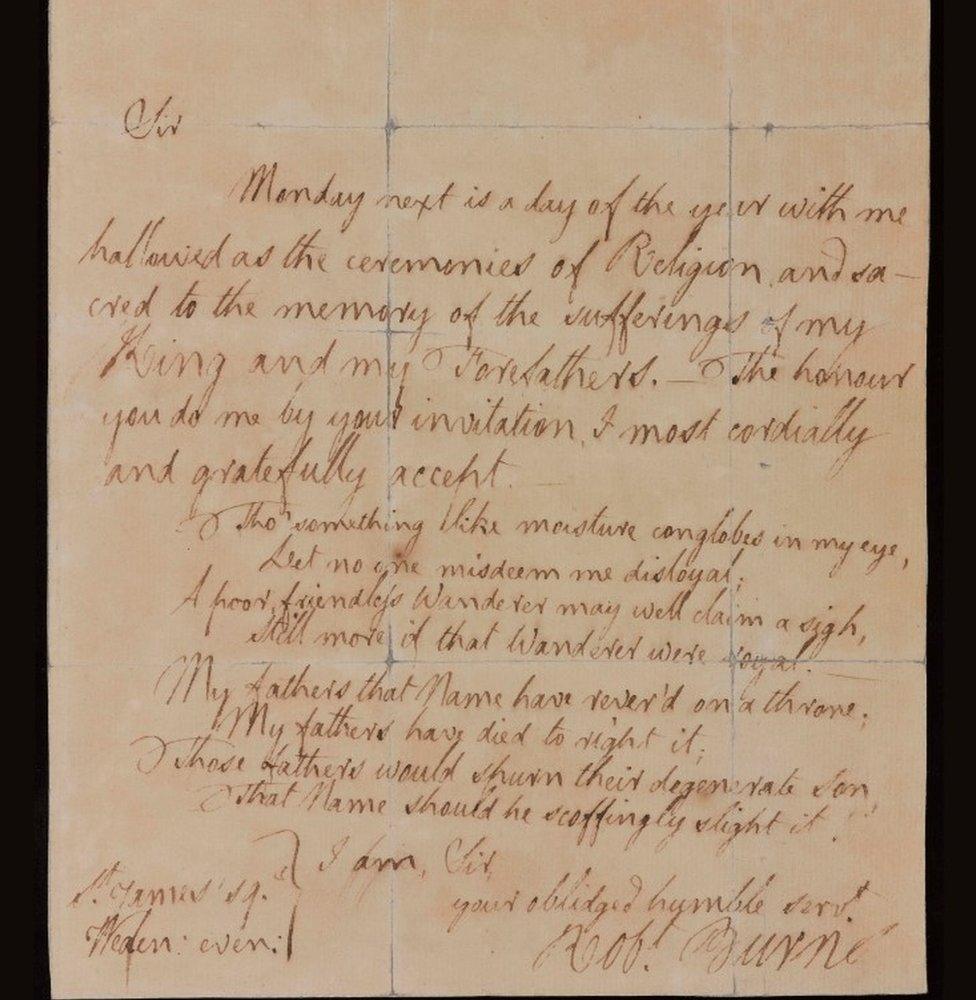 Sir
Monday next is a day of the year with me
hallowed as the ceremonies of Religion and sa-
cred to the memory of the sufferings of my
King and my Forefathers. — The honour
you do me by your invitation, I most cordially
and gratefully accept. —
Tho' something like moisture conglobes in my eye,
Let no one misdeem me disloyal;
A poor, friendless Wanderer may well claim a sigh,
Still more if that Wanderer were royal. —
My fathers that Name have rever'd on a throne;
My fathers have died to right it;
Those fathers would spurn their degenerate Son
That Name should he scoffingly slight it.
I am, Sir,
your obliged humble servt.
St. James' sq.
Weden: even:
Robt. Burns